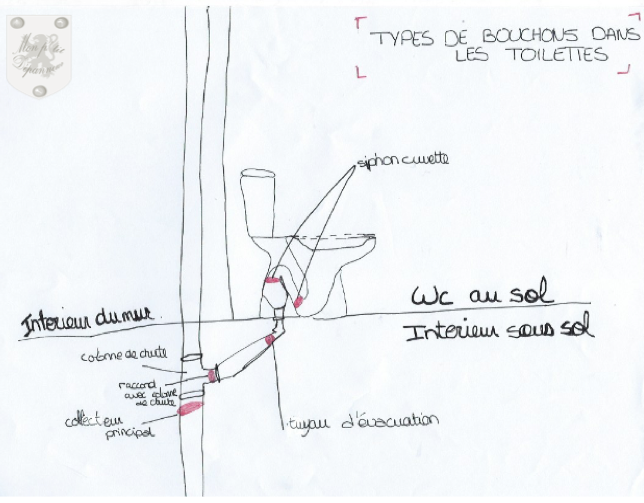 TYPES DE BOUCHONS DANS
LES TOILETTES
siphon cuvette
Wc au sol
Interieur du mur
Interieur sous sol
colonne de chute
raccord
avec colonne
de chute
collecteur
principal
tuyau d'évacuation